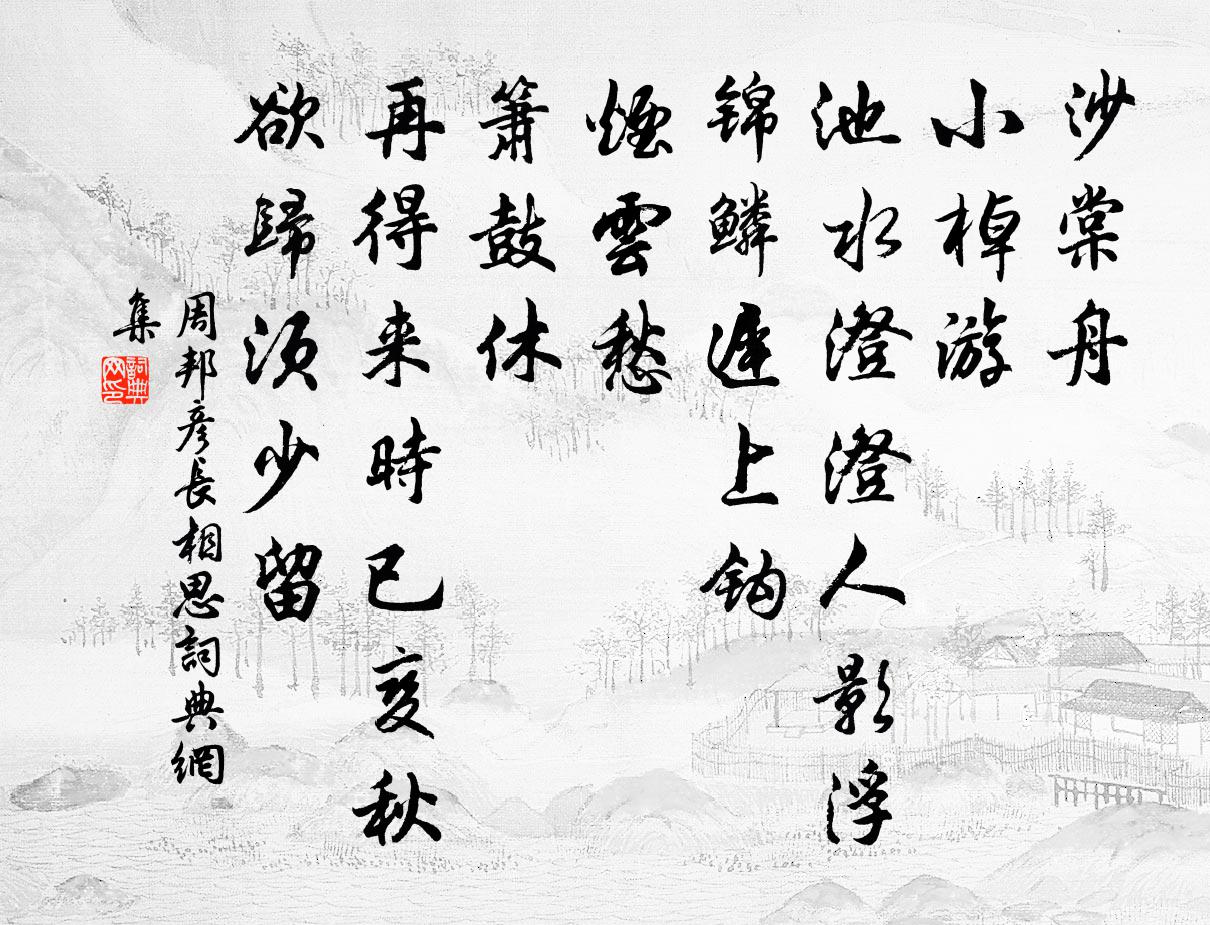 沙棠舟
小棹游
池水澄澄人影浮
锦鳞遲上钩
煙雲愁
簫鼓休
再得来時已变秋
欲歸须少留
周邦彦長相思詞典網
集
詞典
网印